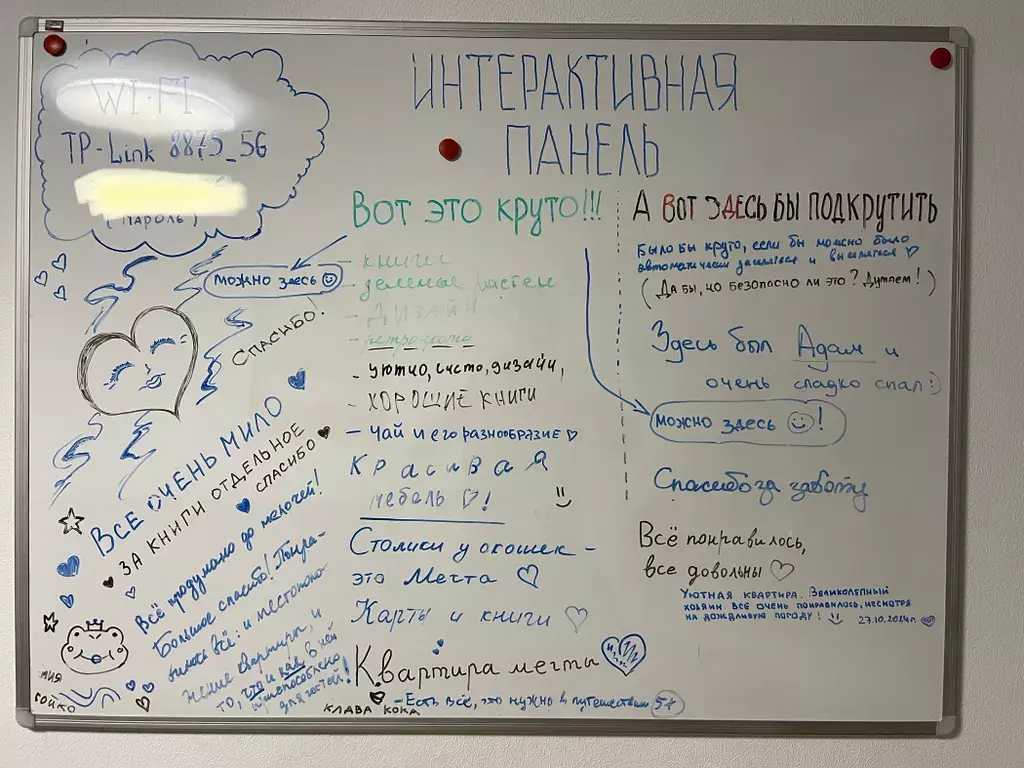 WI-FI
TP-Link 8875_5G
(ПАРОЛЬ)
ИНТЕРАКТИВНАЯ
ПАНЕЛЬ
Вот это круто!!!
можно здесь
- книги
- зеленые растен
- Дизайн
- ретро-фото
- уютно, чисто, дизайн,
- ХОРОШИЕ КНИГИ
- Чай и его разнообразие
Красивая
мебель !
Столики у окошек -
это Мечта
Карты и книги
Квартира мечты
- Есть всё, это нужно в путешествии 5+
КЛАВА КОКА
А ВОТ ЗДЕСЬ БЫ ПОДКРУТИТЬ
Было бы круто, если бы можно было
автоматически заселяться и выселяться
(Да бы, но безопасно ли это? Думаем!)
Здесь был Адам и
очень сладко спал :)
можно здесь !
Спасибо за заботу
Всё понравилось,
все довольны
Уютная квартира. Великолепный
хозяин. Всё очень понравилось, несмотря
на дождливую погоду! 27.10.2024г.
Спасибо!
ВСЕ ОЧЕНЬ МИЛО
ЗА КНИГИ ОТДЕЛЬНОЕ
СПАСИБО
Всё продумано до мелочей!
Большое спасибо! Понра-
вилось всё: и местополо
жение квартиры, и
то, что и как в ней
приспособлено
для гостей!
МИЯ
БОЙКО